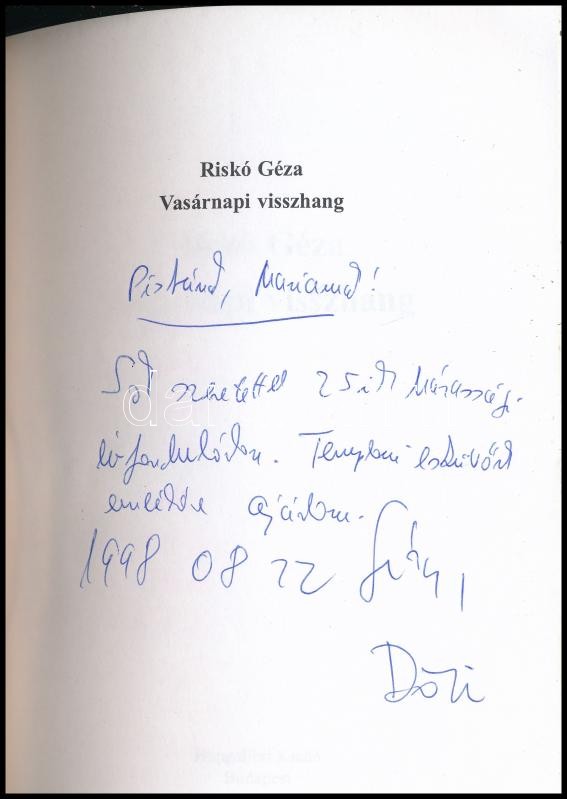 Riskó Géza
Vasárnapi visszhang
Pistának, Mariannak!
Sok szeretettel 25ik házassági
évfordulótokra. Templomi esküvőtök
emlékére ajánlom.
1998 08 22 Géza,
Dóri